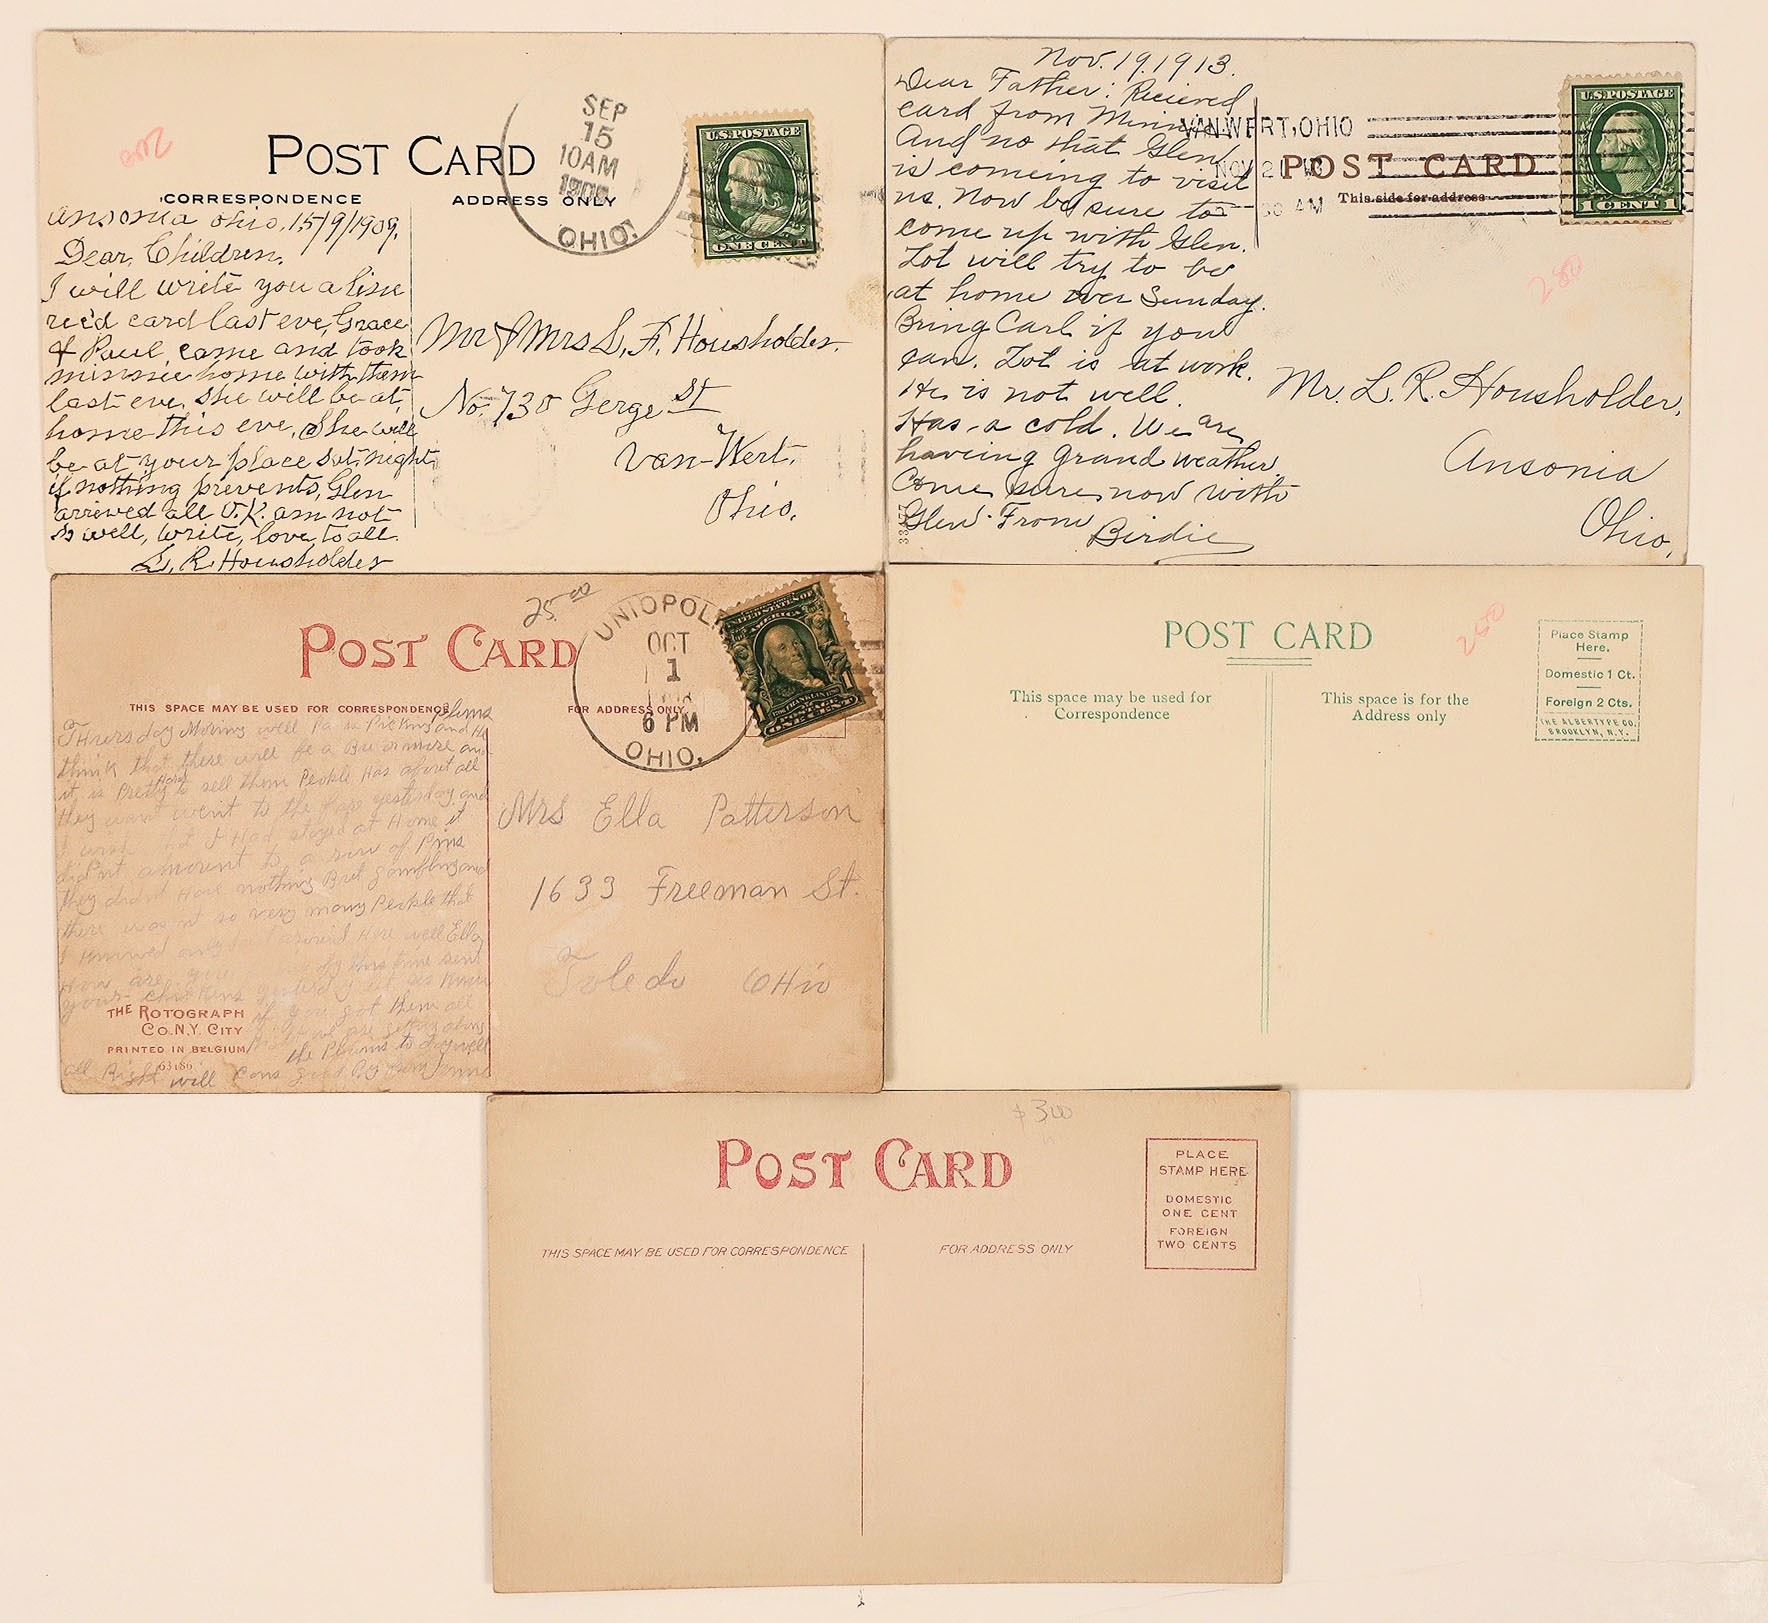 POST CARD
CORRESPONDENCE
ADDRESS ONLY
SEP
15
10AM
1909
OHIO.
U.S. POSTAGE
ONE CENT
Ansonia Ohio, 15/9/1909.
Dear, Children.
I will write you a line
rec'd card last eve, Grace
& Paul, came and took
minnie home with them
last eve. She will be at
home this eve, She will
be at your place Sat. night
if nothing prevents, Glen
arrived all O.K. am not
so well, write, love to all.
L. R. Housholder
Mr & Mrs L. F. Housholder.
No. 730 Gerge St
Van-Wert.
Ohio.
Nov. 19. 1913.
Dear Father: Recieved
card from Minnie
And no that Glen
is comeing to visit
us. Now be sure to
come up with Glen.
Lot will try to be
at home over Sunday.
Bring Carl if you
can. Lot is at work.
He is not well.
Has a cold. We are
haveing grand weather.
Come sure now with
Glen. From
Birdie
VAN WERT, OHIO
NOV 20
AM
POST CARD
This side for address
U.S. POSTAGE
1 CENT 1
280
Mr. L. R. Housholder.
Ansonia
Ohio.
POST CARD
25.00
UNIOPOLIS
OCT
1
6 PM
OHIO.
THIS SPACE MAY BE USED FOR CORRESPONDENCE
FOR ADDRESS ONLY
Thursday Morning well Pa is Picking Plums and He
think that there will be a Bu or more and
it is Pretty Hard to sell them People Has about all
they want went to the fare yesterday and
I wish that I Had stayed at Home it
didnt amount to a row of Pins
they didnt Have nothing But gambling and
there wasnt so very many People that
I knowed only around Here well Ella
How are you this time sent
your chickens yesterday let us know
if you got them all
we are getting along
the Plums to
all Right will good By from
THE ROTOGRAPH
CO. N.Y. CITY
PRINTED IN BELGIUM
63186
Mrs Ella Patterson
1633 Freeman St.
Toledo OHio
POST CARD
This space may be used for
Correspondence
This space is for the
Address only
Place Stamp
Here.
Domestic 1 Ct.
Foreign 2 Cts.
THE ALBERTYPE CO.
BROOKLYN, N.Y.
$300
POST CARD
THIS SPACE MAY BE USED FOR CORRESPONDENCE
FOR ADDRESS ONLY
PLACE
STAMP HERE
DOMESTIC
ONE CENT
FOREIGN
TWO CENTS